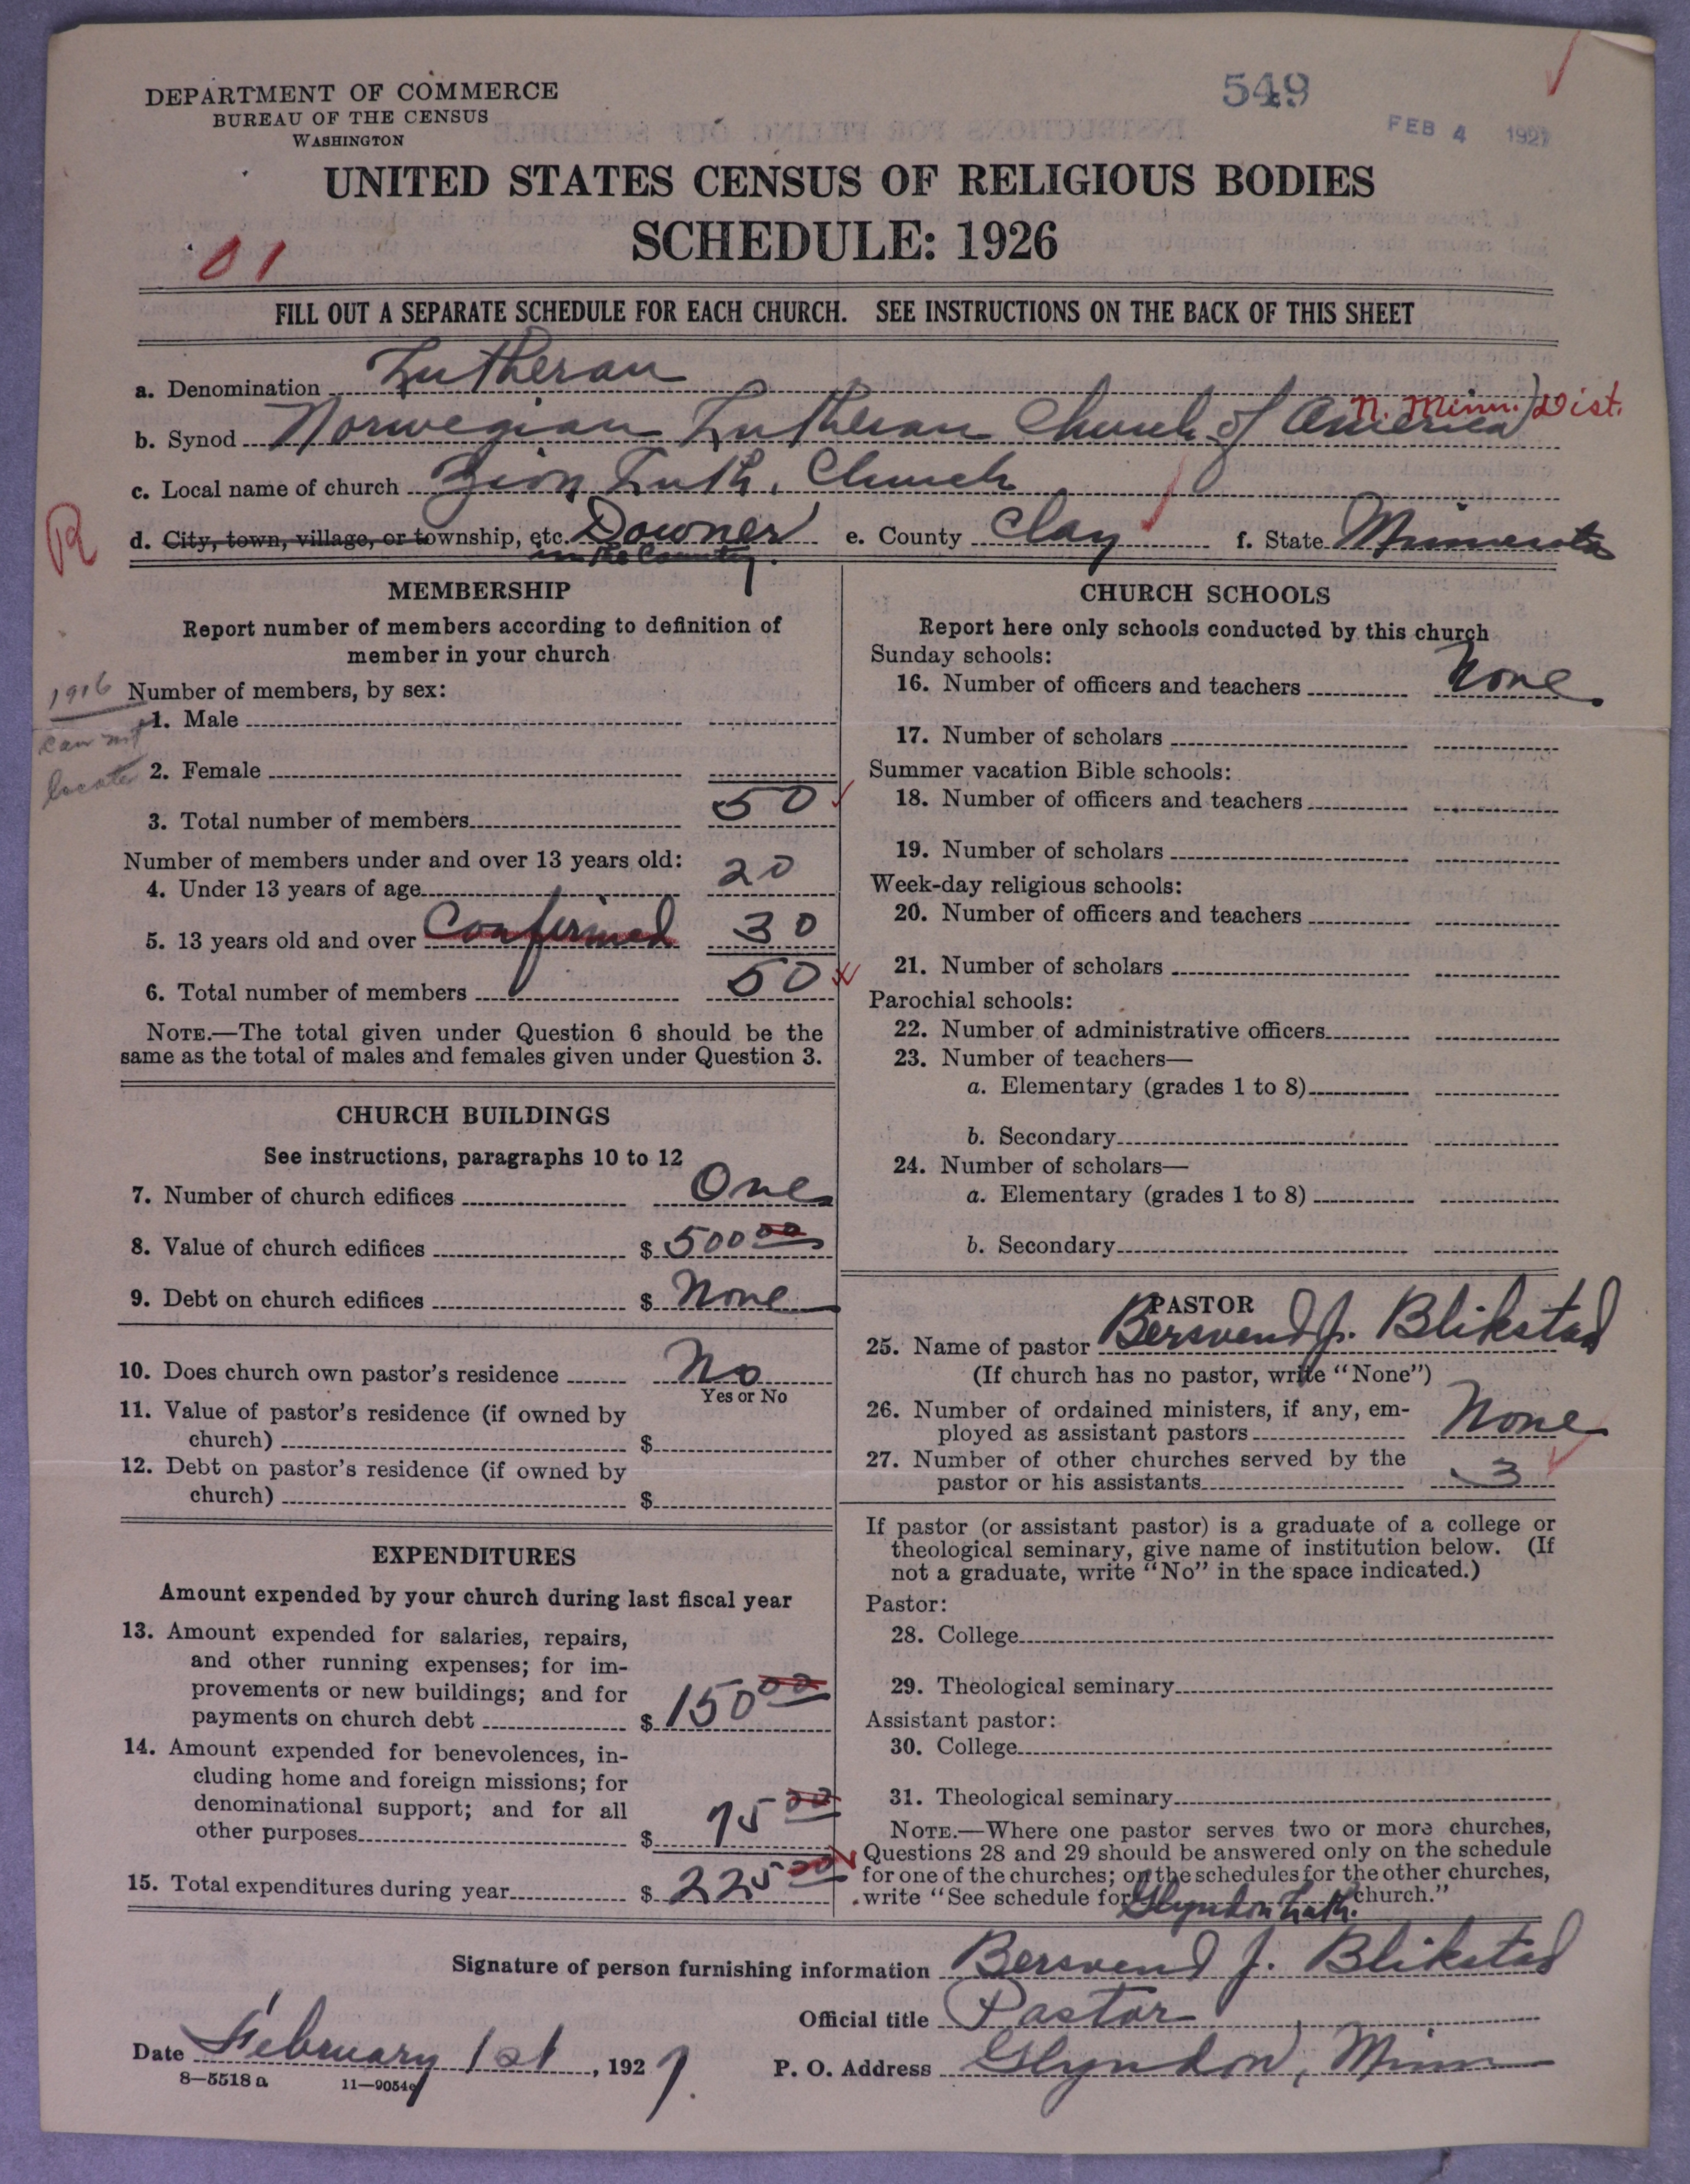 DEPARTMENT OF COMMERCE
BUREAU OF THE CENSUS
WASHINGTON
549
FEB 4 1927
UNITED STATES CENSUS OF RELIGIOUS BODIES
SCHEDULE: 1926
01
FILL OUT A SEPARATE SCHEDULE FOR EACH CHURCH. SEE INSTRUCTIONS ON THE BACK OF THIS SHEET
a. Denomination Lutheran
b. Synod Norwegian Lutheran Church of America N. Minn. Dist.
c. Local name of church Zion Luth. Church
R
d. City, town, village, or township, etc. Downer e. County Clay f. State Minnesota
in the Country.
MEMBERSHIP
Report number of members according to definition of
member in your church
1916
can not
locate
Number of members, by sex:
1. Male
2. Female
3. Total number of members 50
Number of members under and over 13 years old:
4. Under 13 years of age 20
5. 13 years old and over Confirmed 30
6. Total number of members 50
NOTE.—The total given under Question 6 should be the
same as the total of males and females given under Question 3.
CHURCH BUILDINGS
See instructions, paragraphs 10 to 12
7. Number of church edifices One
8. Value of church edifices $ 500 00
9. Debt on church edifices $ None
10. Does church own pastor's residence No
Yes or No
11. Value of pastor's residence (if owned by
church) $
12. Debt on pastor's residence (if owned by
church) $
EXPENDITURES
Amount expended by your church during last fiscal year
13. Amount expended for salaries, repairs,
and other running expenses; for im-
provements or new buildings; and for
payments on church debt $ 150 00
14. Amount expended for benevolences, in-
cluding home and foreign missions; for
denominational support; and for all
other purposes $ 75 00
15. Total expenditures during year $ 225 00
CHURCH SCHOOLS
Report here only schools conducted by this church
Sunday schools:
16. Number of officers and teachers None
17. Number of scholars
Summer vacation Bible schools:
18. Number of officers and teachers
19. Number of scholars
Week-day religious schools:
20. Number of officers and teachers
21. Number of scholars
Parochial schools:
22. Number of administrative officers
23. Number of teachers—
a. Elementary (grades 1 to 8)
b. Secondary
24. Number of scholars—
a. Elementary (grades 1 to 8)
b. Secondary
PASTOR
25. Name of pastor Bersvend J. Blikstad
(If church has no pastor, write "None")
26. Number of ordained ministers, if any, em-
ployed as assistant pastors None
27. Number of other churches served by the
pastor or his assistants 3
If pastor (or assistant pastor) is a graduate of a college or
theological seminary, give name of institution below. (If
not a graduate, write "No" in the space indicated.)
Pastor:
28. College
29. Theological seminary
Assistant pastor:
30. College
31. Theological seminary
NOTE.—Where one pastor serves two or more churches,
Questions 28 and 29 should be answered only on the schedule
for one of the churches; on the schedules for the other churches,
write "See schedule for Glyndon Luth. church."
Signature of person furnishing information Bersvend J. Blikstad
Official title Pastor
Date February 1st, 1927.
P. O. Address Glyndon, Minn
8—5518 a 11—9054